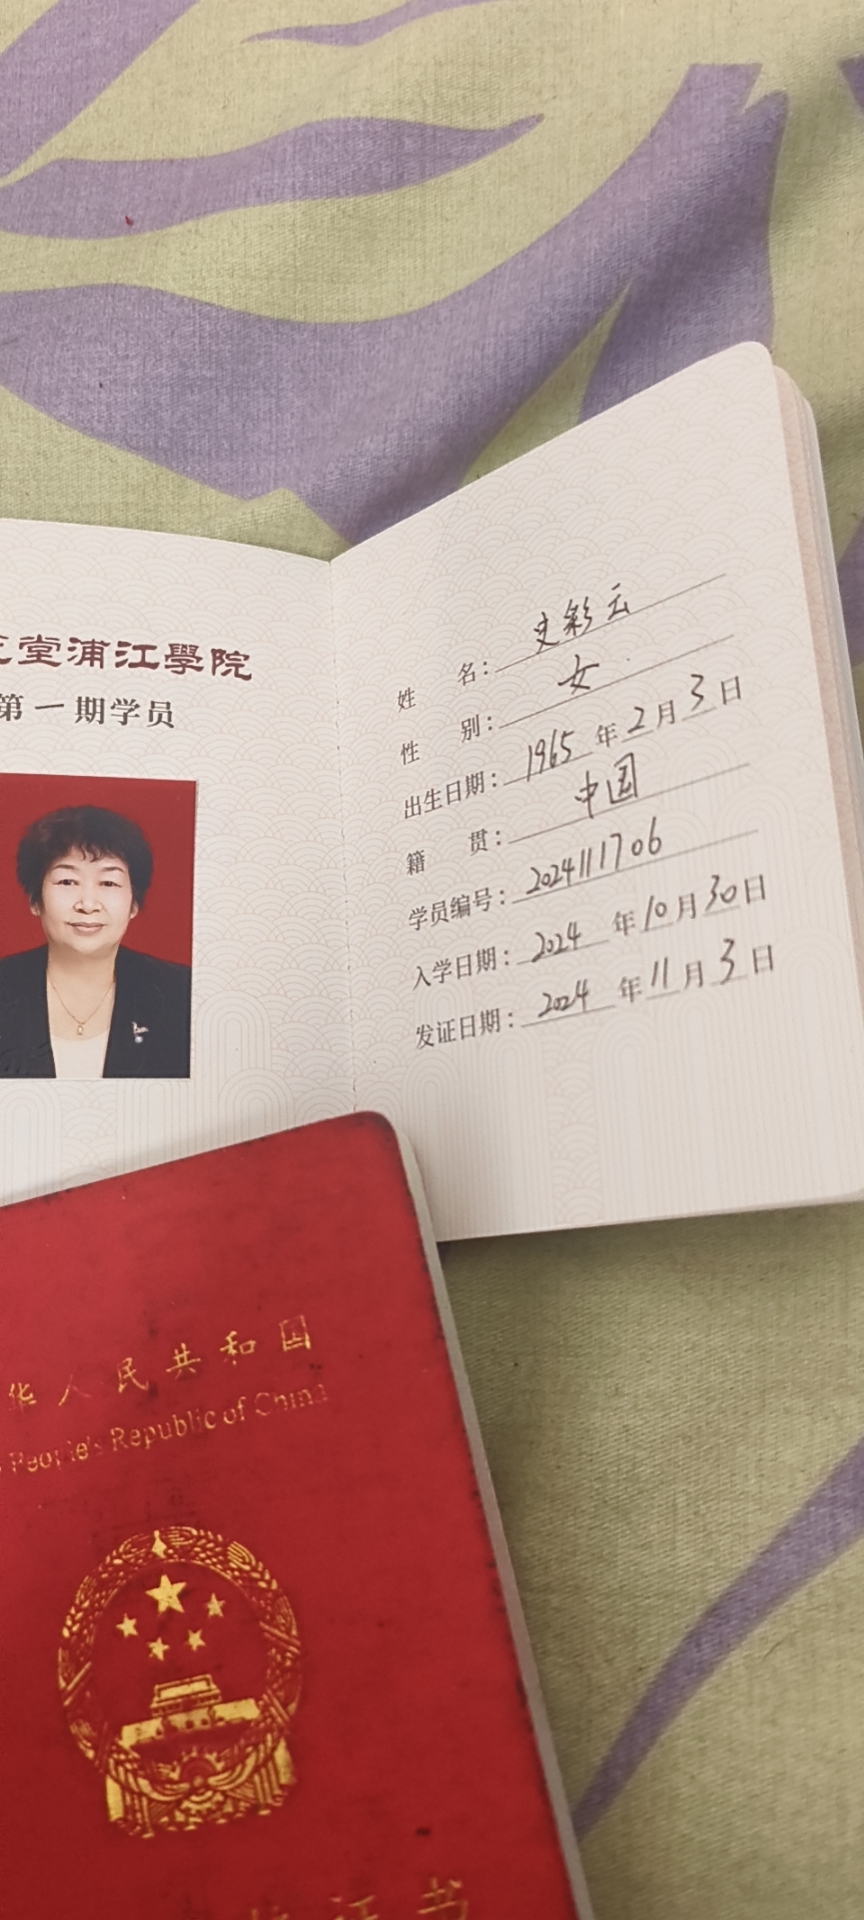 堂浦江學院
第一期学员
姓名：史彩云
性别：女
出生日期：1965年2月3日
籍贯：中国
学员编号：2024111706
入学日期：2024年10月30日
发证日期：2024年11月3日
华人民共和国
People's Republic of China
证书